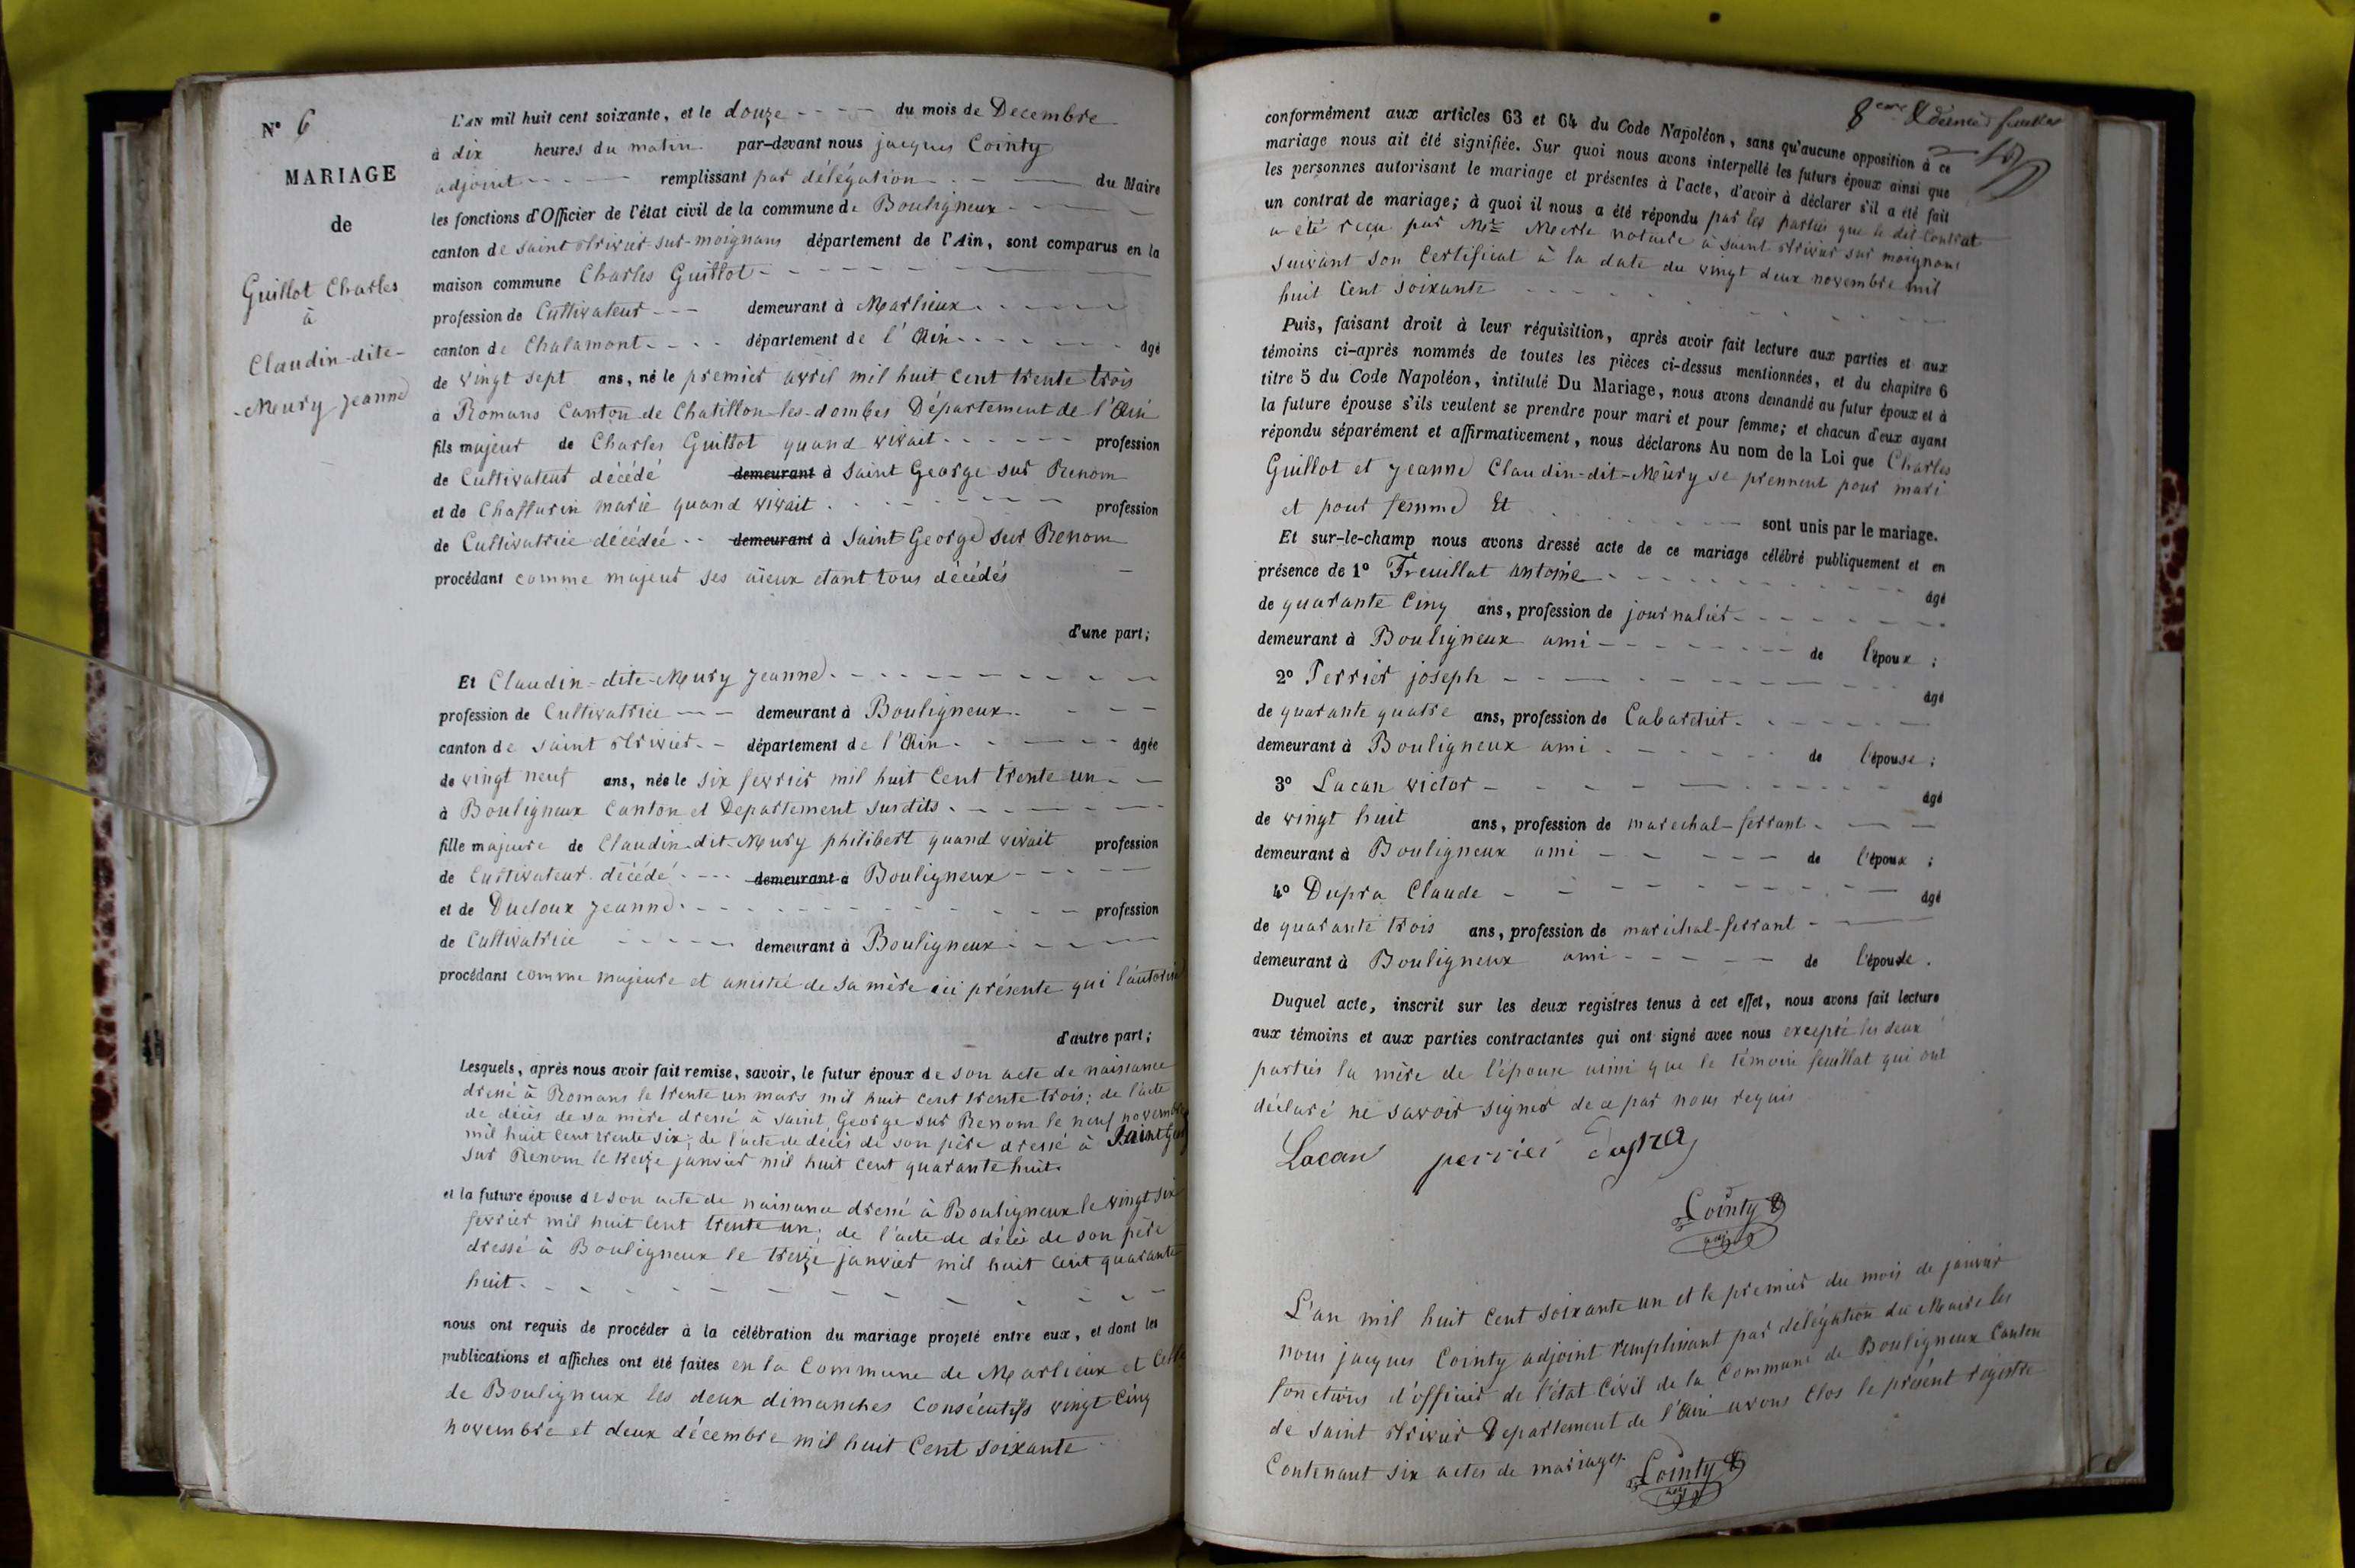 N° 6
MARIAGE
de
Guillot Charles
à
Claudin-dite-
-Meury Jeanne
L'AN mil huit cent soixante, et le douze du mois de Decembre
à dix heures du matin par-devant nous jacques Cointy
adjoint remplissant par délégation du Maire
les fonctions d'Officier de l'état civil de la commune de Bouligneux
canton de saint trivier sur-moignans département de l'Ain, sont comparus en la
maison commune Charles Guillot
profession de Cultivateur demeurant à Marlieux
canton de Chalamont département de l'Ain âgé
de vingt sept ans, né le premier avril mil huit cent trente trois
à Romans Canton de Chatillon-les-dombes Département de l'Ain
fils majeur de Charles Guillot quand vivait profession
de Cultivateur décédé demeurant à saint George sur Renom
et de Chaffurin marie quand vivait profession
de Cultivatrice décédée demeurant à Saint George sur Renom
procédant comme majeur ses aïeux etant tous décédés
d'une part;
Et Claudin-dite-Meury Jeanne
profession de Cultivatrice demeurant à Bouligneux
canton de saint trivier département de l'Ain âgée
de vingt neuf ans, née le six fevrier mil huit cent trente un
à Bouligneux Canton et Departement susdits
fille majeure de Claudin-dit-Meury philibert quand vivait profession
de Cultivateur décédé demeurant à Bouligneux
et de Ducloux Jeanne profession
de Cultivatrice demeurant à Bouligneux
procédant comme majeure et assistée de sa mère ici présente qui l'autorise
d'autre part;
Lesquels, après nous avoir fait remise, savoir, le futur époux de son acte de naissance
dressé à Romans le trente un mars mil huit cent trente trois; de l'acte
de décès de sa mère dressé à saint George sur Renom le neuf novembre
mil huit cent trente six; de l'acte de décès de son père dressé à Saint
sur Renom le treize janvier mil huit cent quarante huit.
et la future épouse de son acte de naissance dressé à Bouligneux le vingt six
fevrier mil huit cent trente un; de l'acte de décès de son père
dressé à Bouligneux le treize janvier mil huit cent quarante
huit.
nous ont requis de procéder à la célébration du mariage projeté entre eux, et dont les
publications et affiches ont été faites en la Commune de Marlieux et Celle
de Bouligneux les deux dimanches Consécutifs vingt Cinq
novembre et deux décembre mil huit Cent soixante
8eme & dernier feuillet
conformément aux articles 63 et 64 du Code Napoléon, sans qu'aucune opposition à ce
mariage nous ait été signifiée. Sur quoi nous avons interpellé les futurs époux ainsi que
les personnes autorisant le mariage et présentes à l'acte, d'avoir à déclarer s'il a été fait
un contrat de mariage; à quoi il nous a été répondu par les parties que le dit Contrat
a été reçu par Me Merle notaire à saint trivier sur moignans
suivant son Certificat à la date du vingt deux novembre mil
huit Cent soixante
Puis, faisant droit à leur réquisition, après avoir fait lecture aux parties et aux
témoins ci-après nommés de toutes les pièces ci-dessus mentionnées, et du chapitre 6
titre 5 du Code Napoléon, intitulé Du Mariage, nous avons demandé au futur époux et à
la future épouse s'ils veulent se prendre pour mari et pour femme; et chacun d'eux ayant
répondu séparément et affirmativement, nous déclarons Au nom de la Loi que Charles
Guillot et Jeanne Claudin-dit-Meury se prennent pour mari
et pour femme Et sont unis par le mariage.
Et sur-le-champ nous avons dressé acte de ce mariage célébré publiquement et en
présence de 1° Feuillat antoine âgé
de quarante Cinq ans, profession de journalier
demeurant à Bouligneux ami de l'époux;
2° Perrier joseph âgé
de quarante quatre ans, profession de Cabaretier
demeurant à Bouligneux ami de l'épouse;
3° Lacan victor âgé
de vingt huit ans, profession de marechal-ferrant
demeurant à Bouligneux ami de l'époux;
4° Dupra Claude âgé
de quarante trois ans, profession de maréchal-ferrant
demeurant à Bouligneux ami de l'épouse.
Duquel acte, inscrit sur les deux registres tenus à cet effet, nous avons fait lecture
aux témoins et aux parties contractantes qui ont signé avec nous excepté les deux
parties la mère de l'épouse ainsi que le témoin feuillat qui ont
déclaré ne savoir signer de ce par nous requis
Lacan perrier Dupra
Cointy
adj
L'an mil huit Cent soixante un et le premier du mois de janvier
nous jacques Cointy adjoint remplissant par délégation du Maire les
fonctions d'officier de l'état Civil de la Commune de Bouligneux Canton
de saint trivier Departement de l'Ain avons Clos le présent registre
Contenant six actes de mariages
Cointy
adj